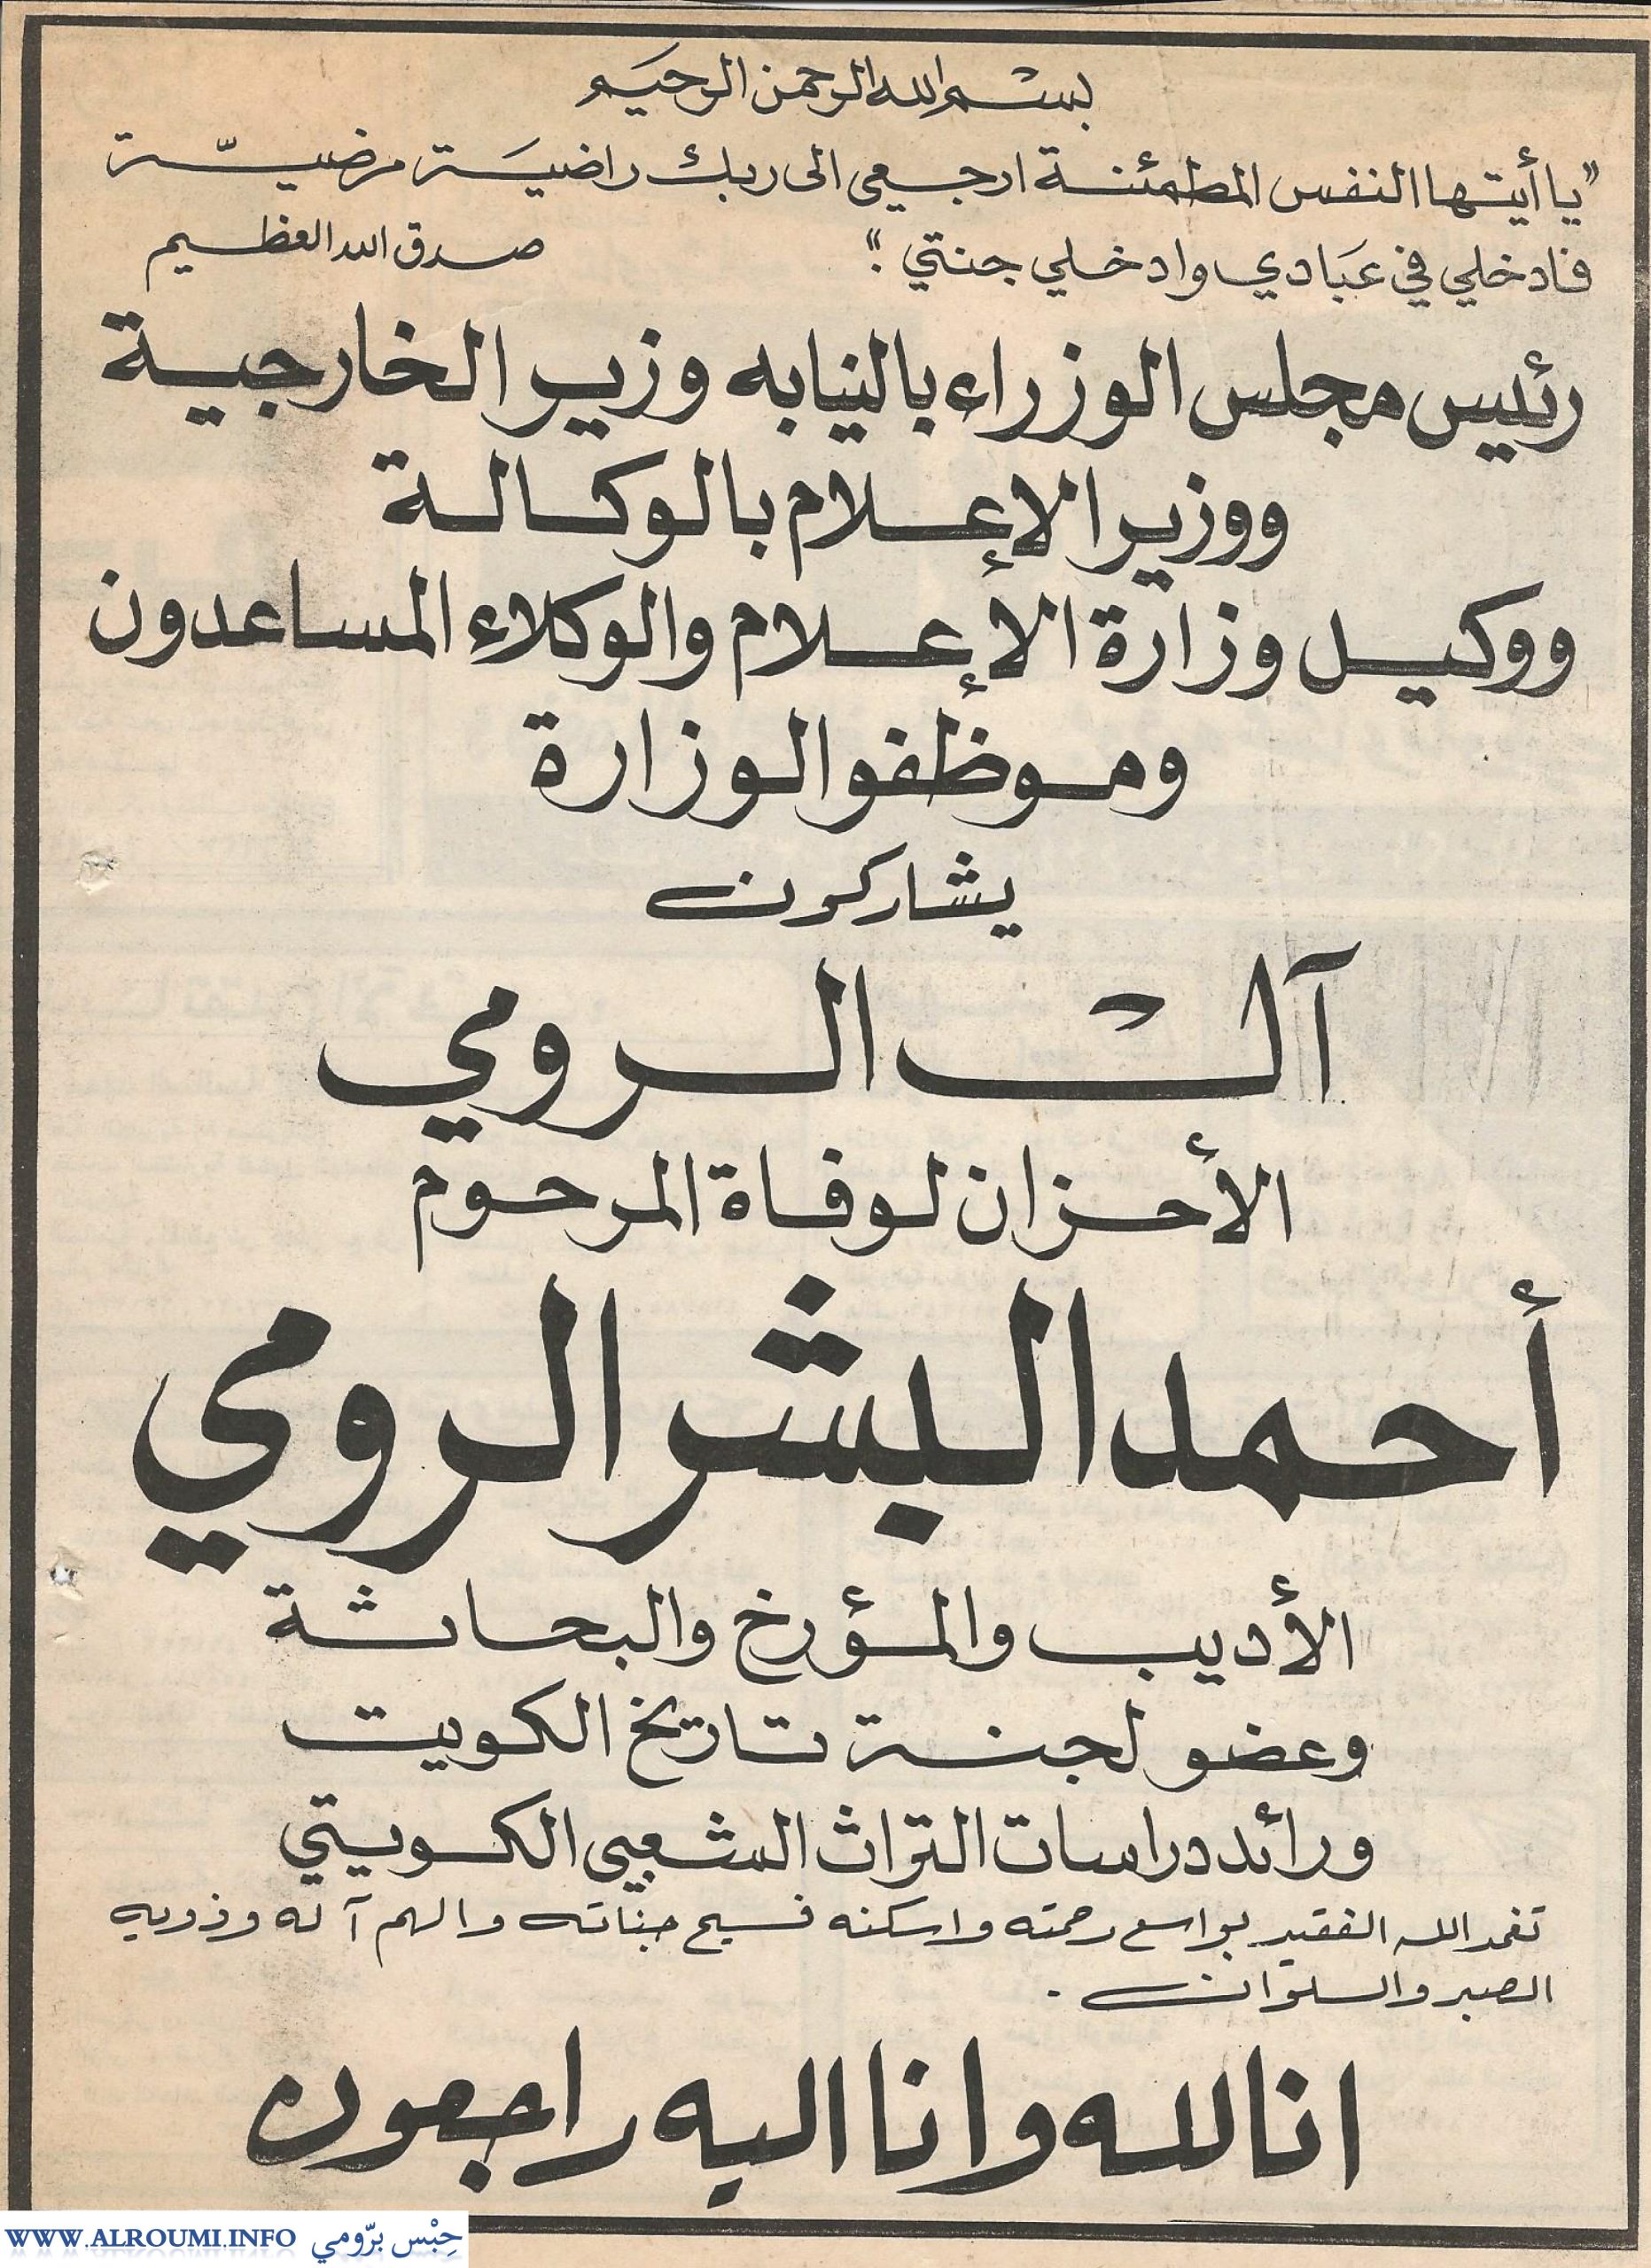 بسم الله الرحمن الرحيم
"يا أيتها النفس المطمئنة ارجعي الى ربك راضية مرضية
فادخلي في عبادي وادخلي جنتي." صدق الله العظيم
رئيس مجلس الوزراء بالنيابه وزير الخارجية
ووزير الإعلام بالوكالة
ووكيل وزارة الأعلام والوكلاء المساعدون
وموظفو الوزارة
يشاركون
آل الرومي
الأحزان لوفاة المرحوم
أحمد البشر الرومي
الأديب والمؤرخ والبحاثة
وعضو لجنة تاريخ الكويت
ورائد دراسات التراث الشعبي الكويتي
تغمد الله الفقيد بواسع رحمته واسكنه فسيح جناته والهم آله وذويه
الصبر والسلوان.
انا لله وانا اليه راجعون
WWW.ALROUMI.INFO حِبْس برّومي